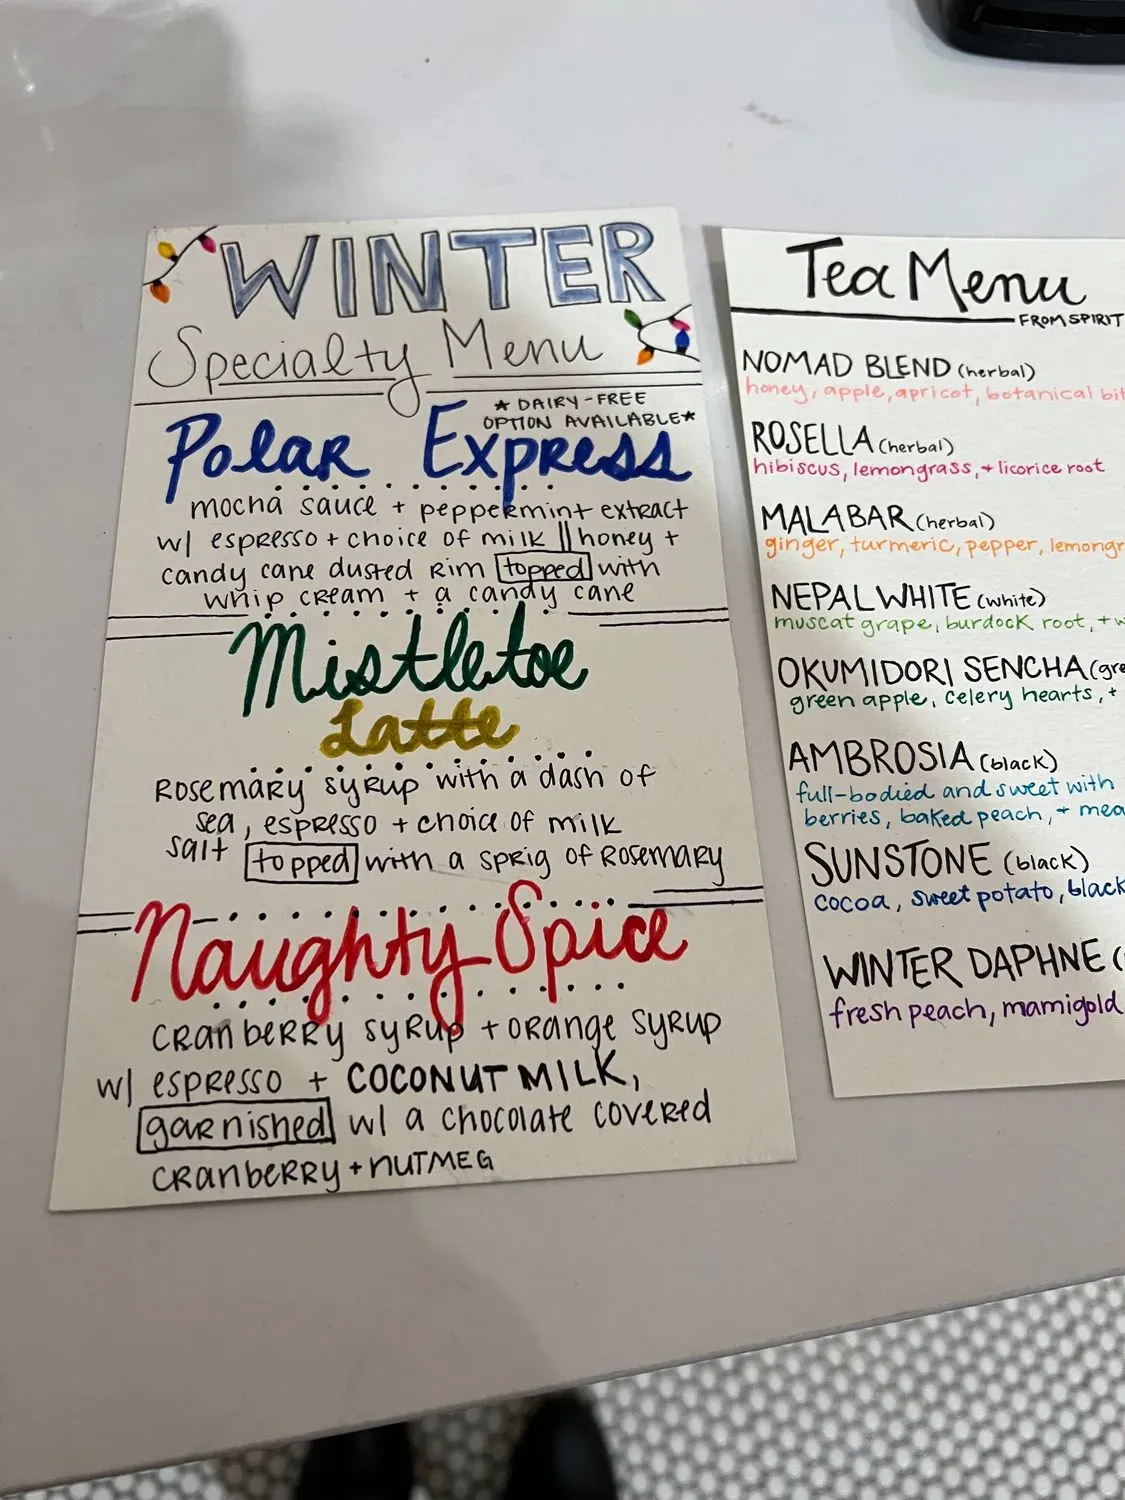 WINTER
Specialty Menu
* DAIRY-FREE
OPTION AVAILABLE*
Polar Express
mocha sauce + peppermint extract
w/ espresso + choice of milk || honey +
candy cane dusted rim topped with
whip cream + a candy cane
Mistletoe
Latte
Rosemary syrup with a dash of
sea, espresso + choice of milk
salt topped with a sprig of Rosemary
Naughty Spice
cranberry syrup + orange syrup
w/ espresso + COCONUT MILK,
garnished w/ a chocolate covered
cranberry + nutmeg
Tea Menu
FROM SPIRIT
NOMAD BLEND (herbal)
honey, apple, apricot, botanical
ROSELLA (herbal)
hibiscus, lemongrass, + licorice root
MALABAR (herbal)
ginger, turmeric, pepper,
NEPAL WHITE (white)
muscat grape, burdock root, +
OKUMIDORI SENCHA
green apple, celery hearts, +
AMBROSIA (black)
full-bodied and sweet with
berries, baked peach, +
SUNSTONE (black)
cocoa, sweet potato, black
WINTER DAPHNE (
fresh peach, mamigold